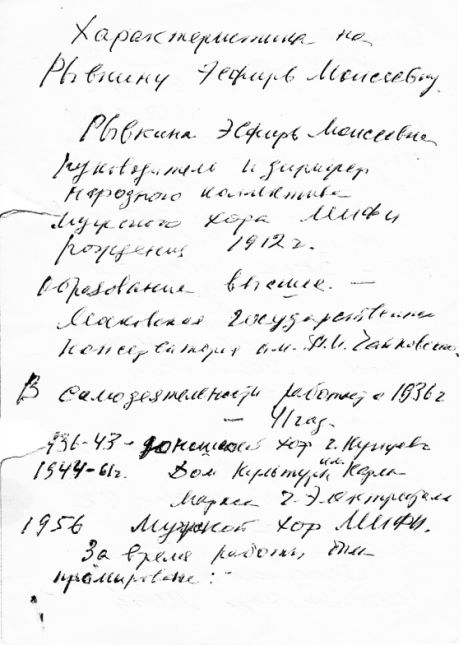 Характеристика на
Рывкину Эсфирь Моисеевну.
Рывкина Эсфирь Моисеевна
руководитель и дирижер
народного коллектива
Мужского хора МИФИ
рождения 1912 г.
Образование высшее. —
Московская Государственная
Консерватория им. П.И. Чайковского.
В самодеятельности работает с 1936 г
— 41 год.
1936-43 - хор г.
1944-61г. Дом Культуры им. Карла
Маркса г. Электросталь
1956 Мужской хор МИФИ.
За время работы была
премирована: -